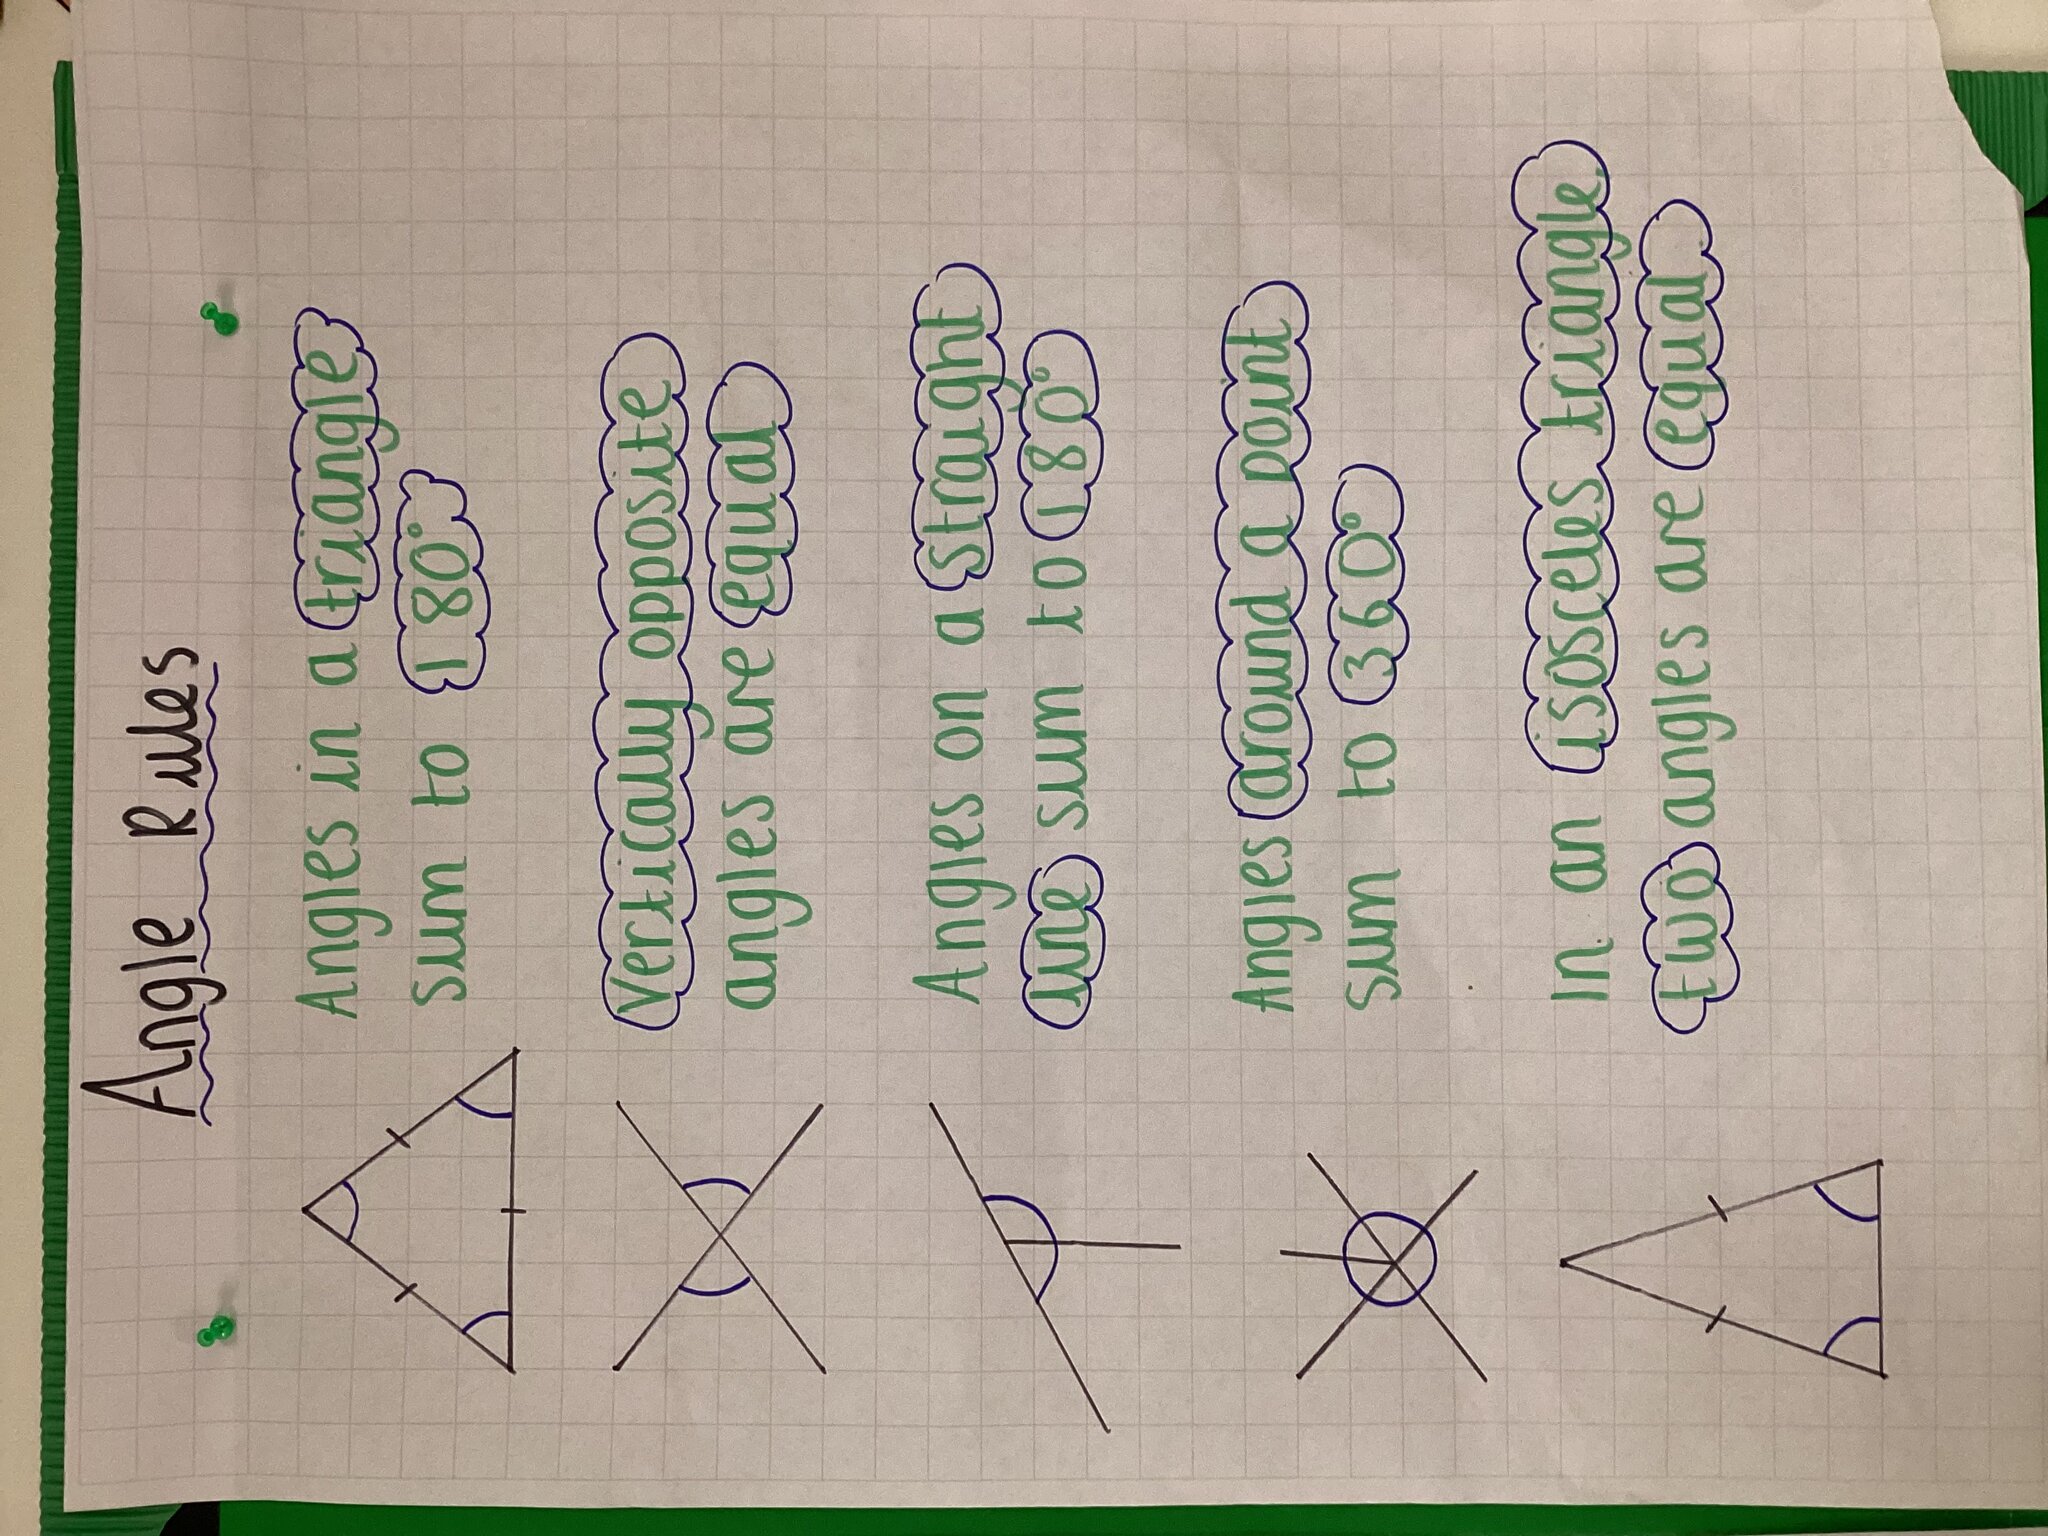 Angle Rules
Angles in a triangle
sum to 180°
Vertically opposite
angles are equal
Angles on a straight
line sum to 180°
Angles around a point
sum to 360°
In an isosceles triangle
two angles are equal